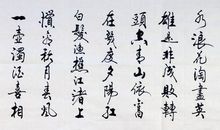 水浪花淘盡英
雄是非成敗轉
頭空青山依舊
在幾度夕陽紅
白髮漁樵江渚上
慣看秋月春風
一壺濁酒喜相